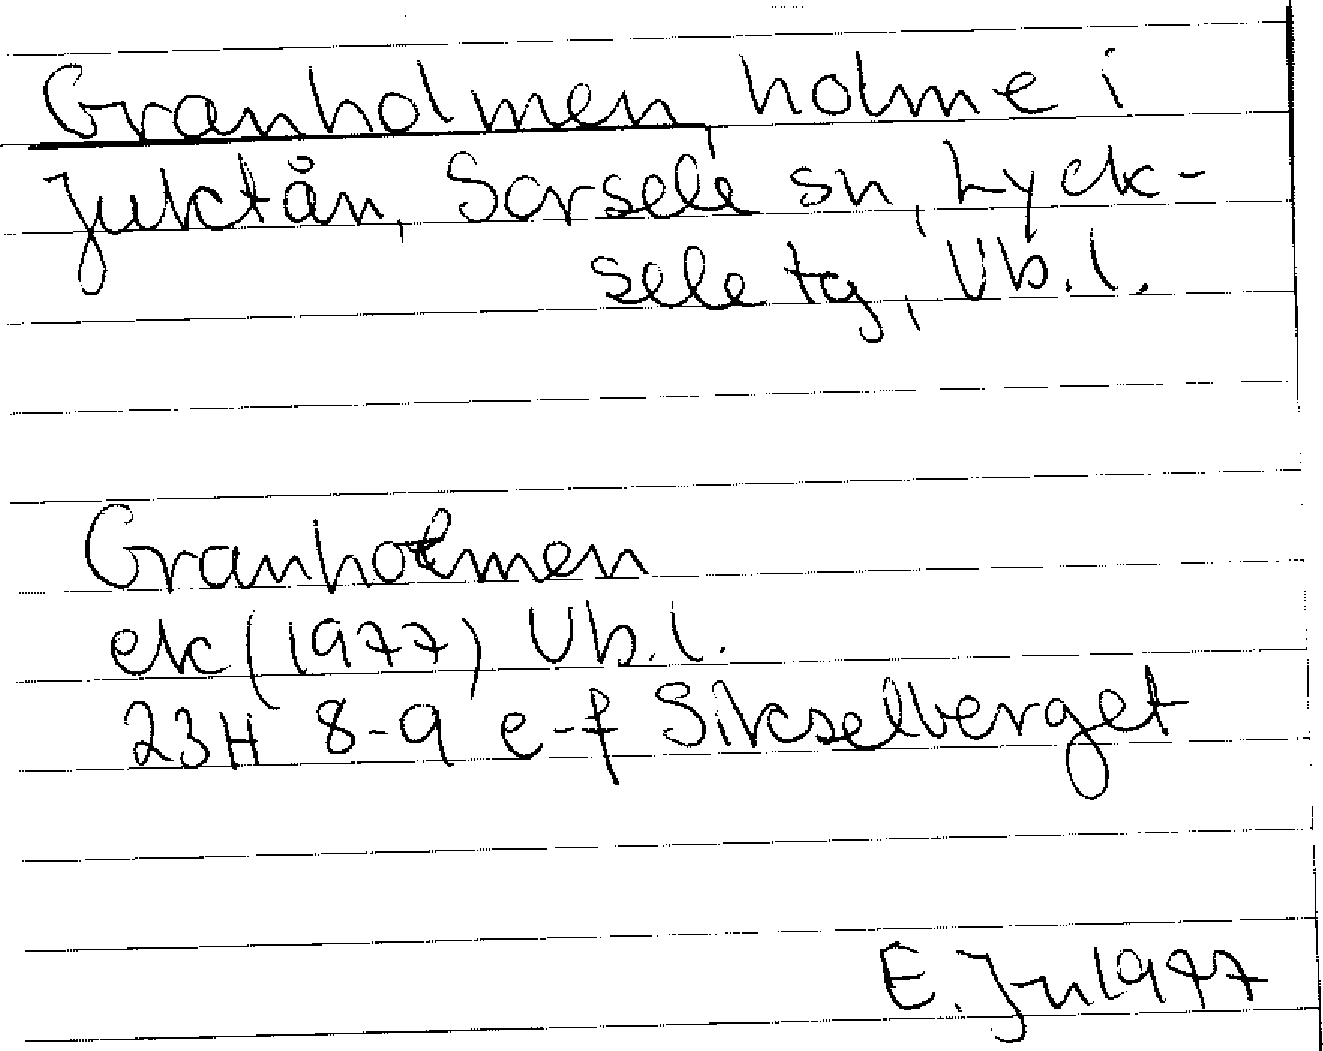 Granholmen, holme i
Juktån, Sorsele sn, Lyck-
sele tg, Vb.l.
Granholmen
ek (1977) Vb.l.
23H 8-9 e-f Sikselberget
E. Jn 1977